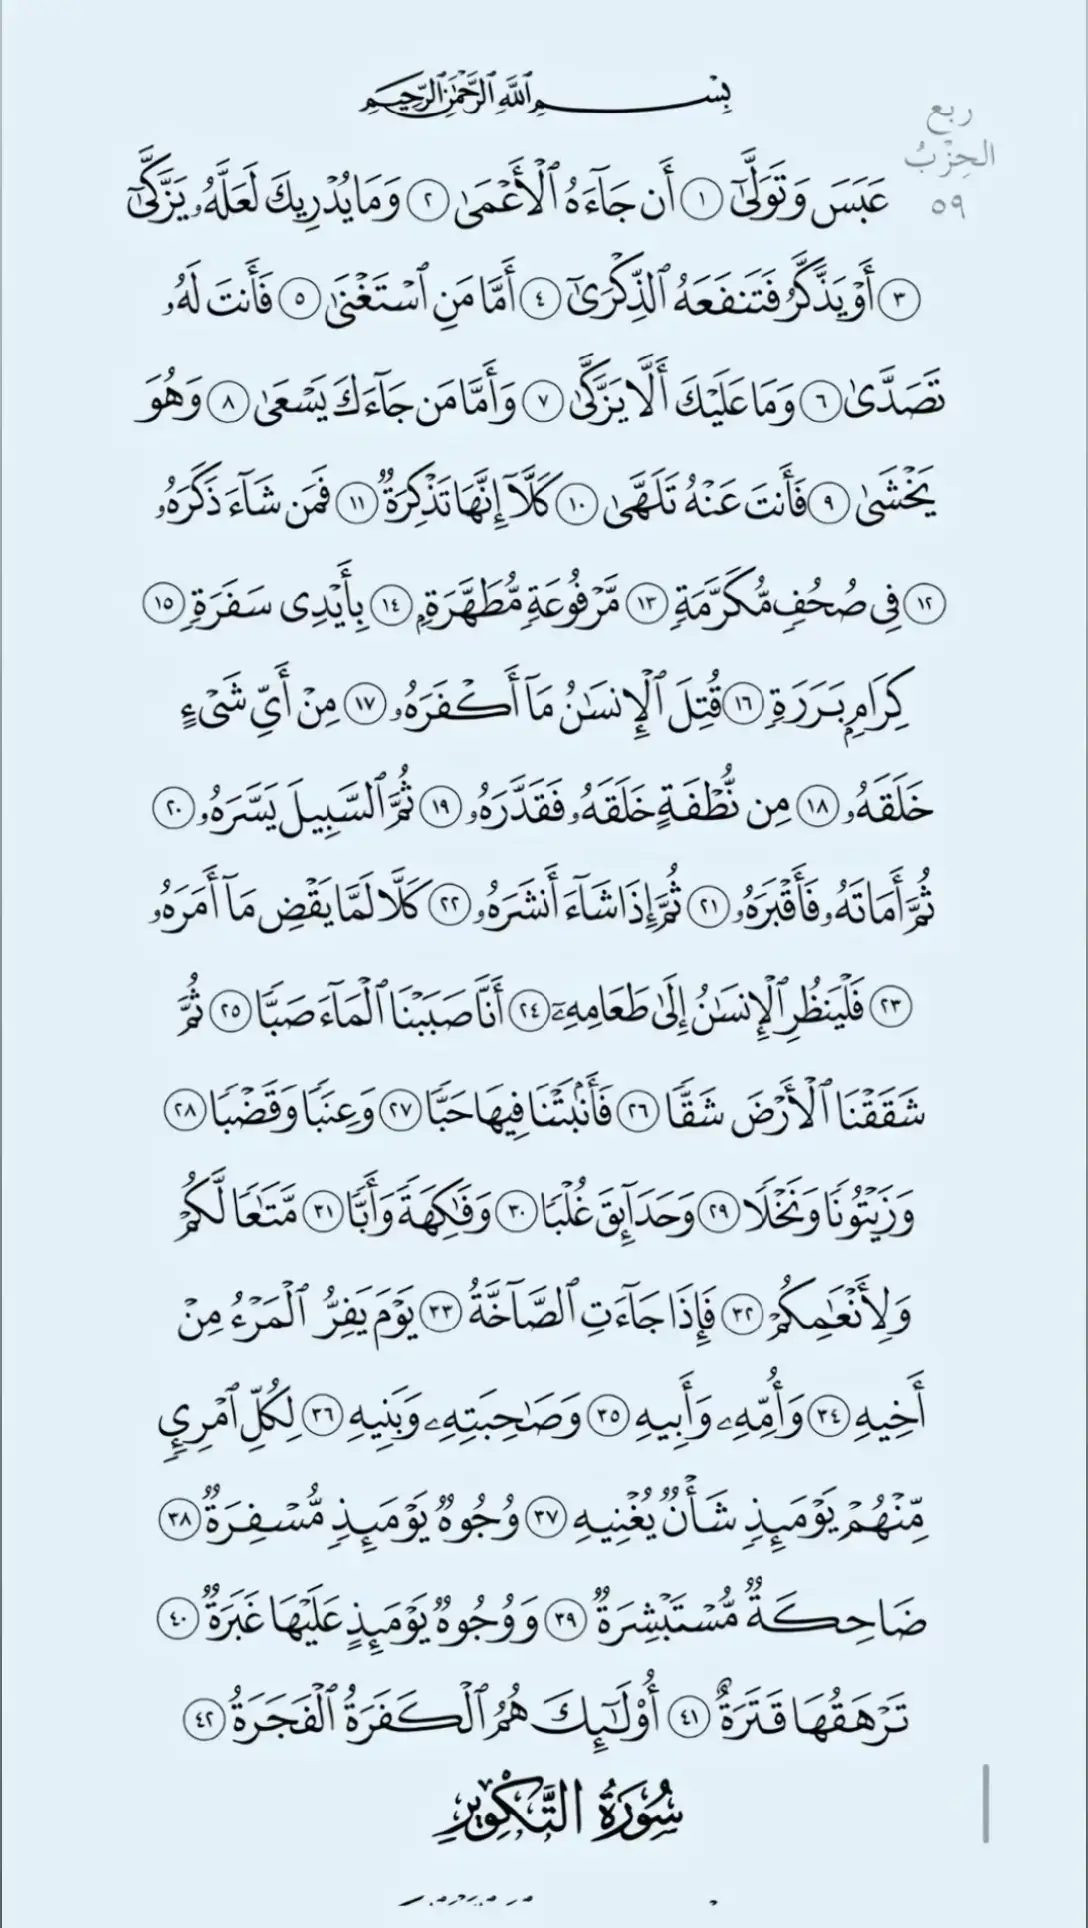 بِسۡمِ ٱللَّهِ ٱلرَّحۡمَٰنِ ٱلرَّحِيمِ
ربع
الحِزْبُ
٥٩
عَبَسَ وَتَوَلَّىٰٓ ١ أَن جَآءَهُ ٱلۡأَعۡمَىٰ ٢ وَمَا يُدۡرِيكَ لَعَلَّهُۥ يَزَّكَّىٰٓ
٣ أَوۡ يَذَّكَّرُ فَتَنفَعَهُ ٱلذِّكۡرَىٰٓ ٤ أَمَّا مَنِ ٱسۡتَغۡنَىٰ ٥ فَأَنتَ لَهُۥ
تَصَدَّىٰ ٦ وَمَا عَلَيۡكَ أَلَّا يَزَّكَّىٰ ٧ وَأَمَّا مَن جَآءَكَ يَسۡعَىٰ ٨ وَهُوَ
يَخۡشَىٰ ٩ فَأَنتَ عَنۡهُ تَلَهَّىٰ ١٠ كَلَّآ إِنَّهَا تَذۡكِرَةٞ ١١ فَمَن شَآءَ ذَكَرَهُۥ
١٢ فِي صُحُفٖ مُّكَرَّمَةٖ ١٣ مَّرۡفُوعَةٖ مُّطَهَّرَةِۭ ١٤ بِأَيۡدِي سَفَرَةٖ ١٥
كِرَامِۭ بَرَرَةٖ ١٦ قُتِلَ ٱلۡإِنسَٰنُ مَآ أَكۡفَرَهُۥ ١٧ مِنۡ أَيِّ شَيۡءٍ
خَلَقَهُۥ ١٨ مِن نُّطۡفَةٍ خَلَقَهُۥ فَقَدَّرَهُۥ ١٩ ثُمَّ ٱلسَّبِيلَ يَسَّرَهُۥ ٢٠
ثُمَّ أَمَاتَهُۥ فَأَقۡبَرَهُۥ ٢١ ثُمَّ إِذَا شَآءَ أَنشَرَهُۥ ٢٢ كَلَّا لَمَّا يَقۡضِ مَآ أَمَرَهُۥ
٢٣ فَلۡيَنظُرِ ٱلۡإِنسَٰنُ إِلَىٰ طَعَامِهِۦٓ ٢٤ أَنَّا صَبَبۡنَا ٱلۡمَآءَ صَبّٗا ٢٥ ثُمَّ
شَقَقۡنَا ٱلۡأَرۡضَ شَقّٗا ٢٦ فَأَنۢبَتۡنَا فِيهَا حَبّٗا ٢٧ وَعِنَبٗا وَقَضۡبٗا ٢٨
وَزَيۡتُونٗا وَنَخۡلٗا ٢٩ وَحَدَآئِقَ غُلۡبٗا ٣٠ وَفَٰكِهَةٗ وَأَبّٗا ٣١ مَّتَٰعٗا لَّكُمۡ
وَلِأَنۡعَٰمِكُمۡ ٣٢ فَإِذَا جَآءَتِ ٱلصَّآخَّةُ ٣٣ يَوۡمَ يَفِرُّ ٱلۡمَرۡءُ مِنۡ
أَخِيهِ ٣٤ وَأُمِّهِۦ وَأَبِيهِ ٣٥ وَصَٰحِبَتِهِۦ وَبَنِيهِ ٣٦ لِكُلِّ ٱمۡرِيٕٖ
مِّنۡهُمۡ يَوۡمَئِذٖ شَأۡنٞ يُغۡنِيهِ ٣٧ وُجُوهٞ يَوۡمَئِذٖ مُّسۡفِرَةٞ ٣٨
ضَاحِكَةٞ مُّسۡتَبۡشِرَةٞ ٣٩ وَوُجُوهٞ يَوۡمَئِذٍ عَلَيۡهَا غَبَرَةٞ ٤٠
تَرۡهَقُهَا قَتَرَةٌ ٤١ أُوْلَٰٓئِكَ هُمُ ٱلۡكَفَرَةُ ٱلۡفَجَرَةُ ٤٢
سُورَةُ التَّكْوِيرِ